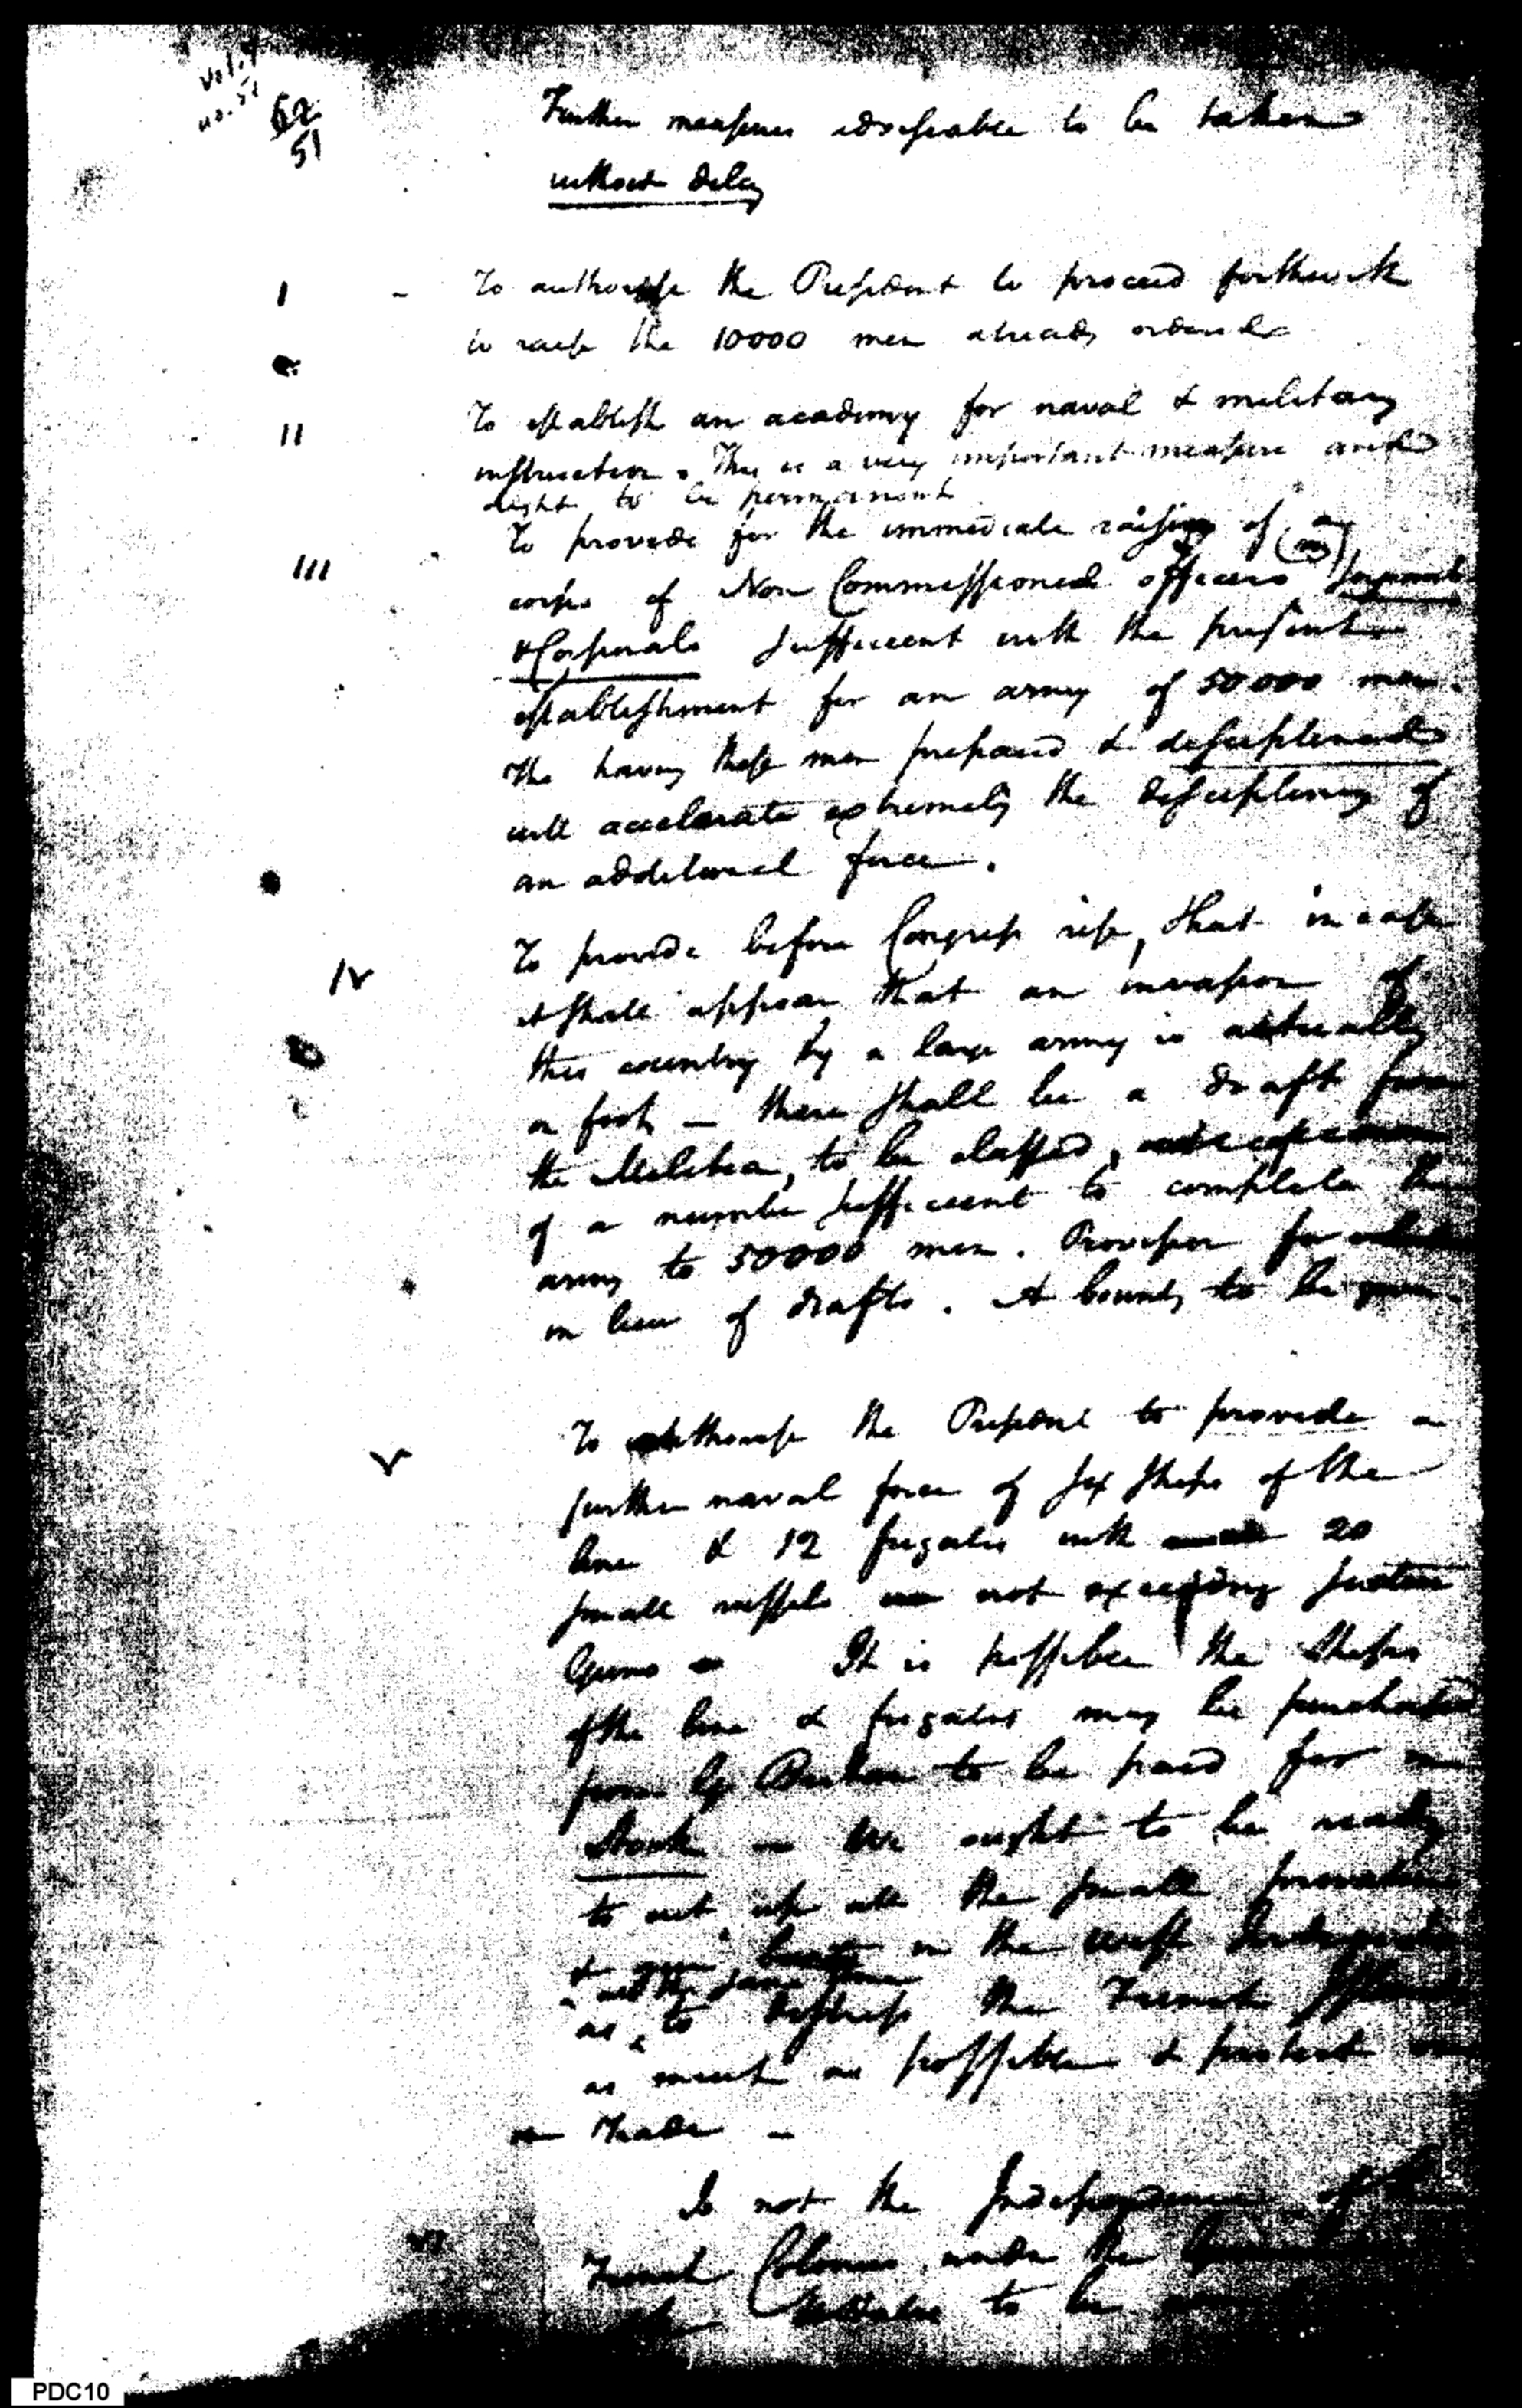 Vol. 1
no. 51
62
51
Further measures adviseable to be taken
without delay
I - To authorise the President to proceed forthwith
to raise the 10000 men already ordered
II To establish an academy for naval & military
instruction. This is a very important measure and
ought to be permanent
III To provide for the immediate raising of a
corps of Non Commissioned officers (viz) Serjeants
& Corporals sufficient with the present
establishment for an army of 50000 men.
The having these men prepared & disciplined
will accelerate extremely the disciplining of
an additional force.
IV To provide before Congress rise, that in case
it shall appear that an invasion of
this country by a large army is actually
on foot — there shall be a draft from
the Militia, to be classed,
of a number sufficient to complete the
army to 50000 men. Provision for
in lieu of drafts. A bounty to be given
V To authorise the President to provide a
further naval force of six ships of the
line & 12 frigates with 20
small vessels not exceeding sixteen
Guns — It is possible the ships
of the line & frigates may be purchased
from G Britain to be paid for in
Stock — We ought to be ready
to cut up all the small privateers
& gun boats in the West Indies
at the same time
as to distress the French Islands
as much as possible & protect our
Trade —
VI Is not the Independence of the
French Colonies under the
to be
PDC10